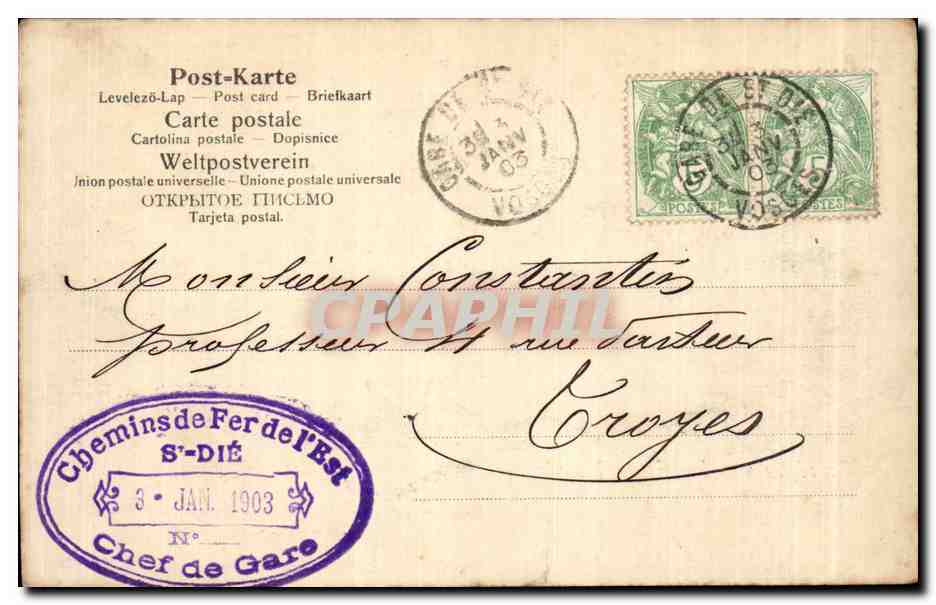 Post-Karte
Levelező-Lap — Post card — Briefkaart
Carte postale
Cartolina postale — Dopisnice
Weltpostverein
Union postale universelle — Unione postale universale
ОТКРЫТОЕ ПИСЬМО
Tarjeta postal.
GARE DE ST DIE
3
JANV
03
VOSGES
GARE DE ST DIE
3
JANV
03
VOSGES
5 5
POSTES POSTES
Monsieur Constantin
CPAPHIL
professeur 4 rue Pasteur
Troyes
Chemins de Fer de l'Est
ST-DIÉ
3 - JAN. 1903
N°
Chef de Gare